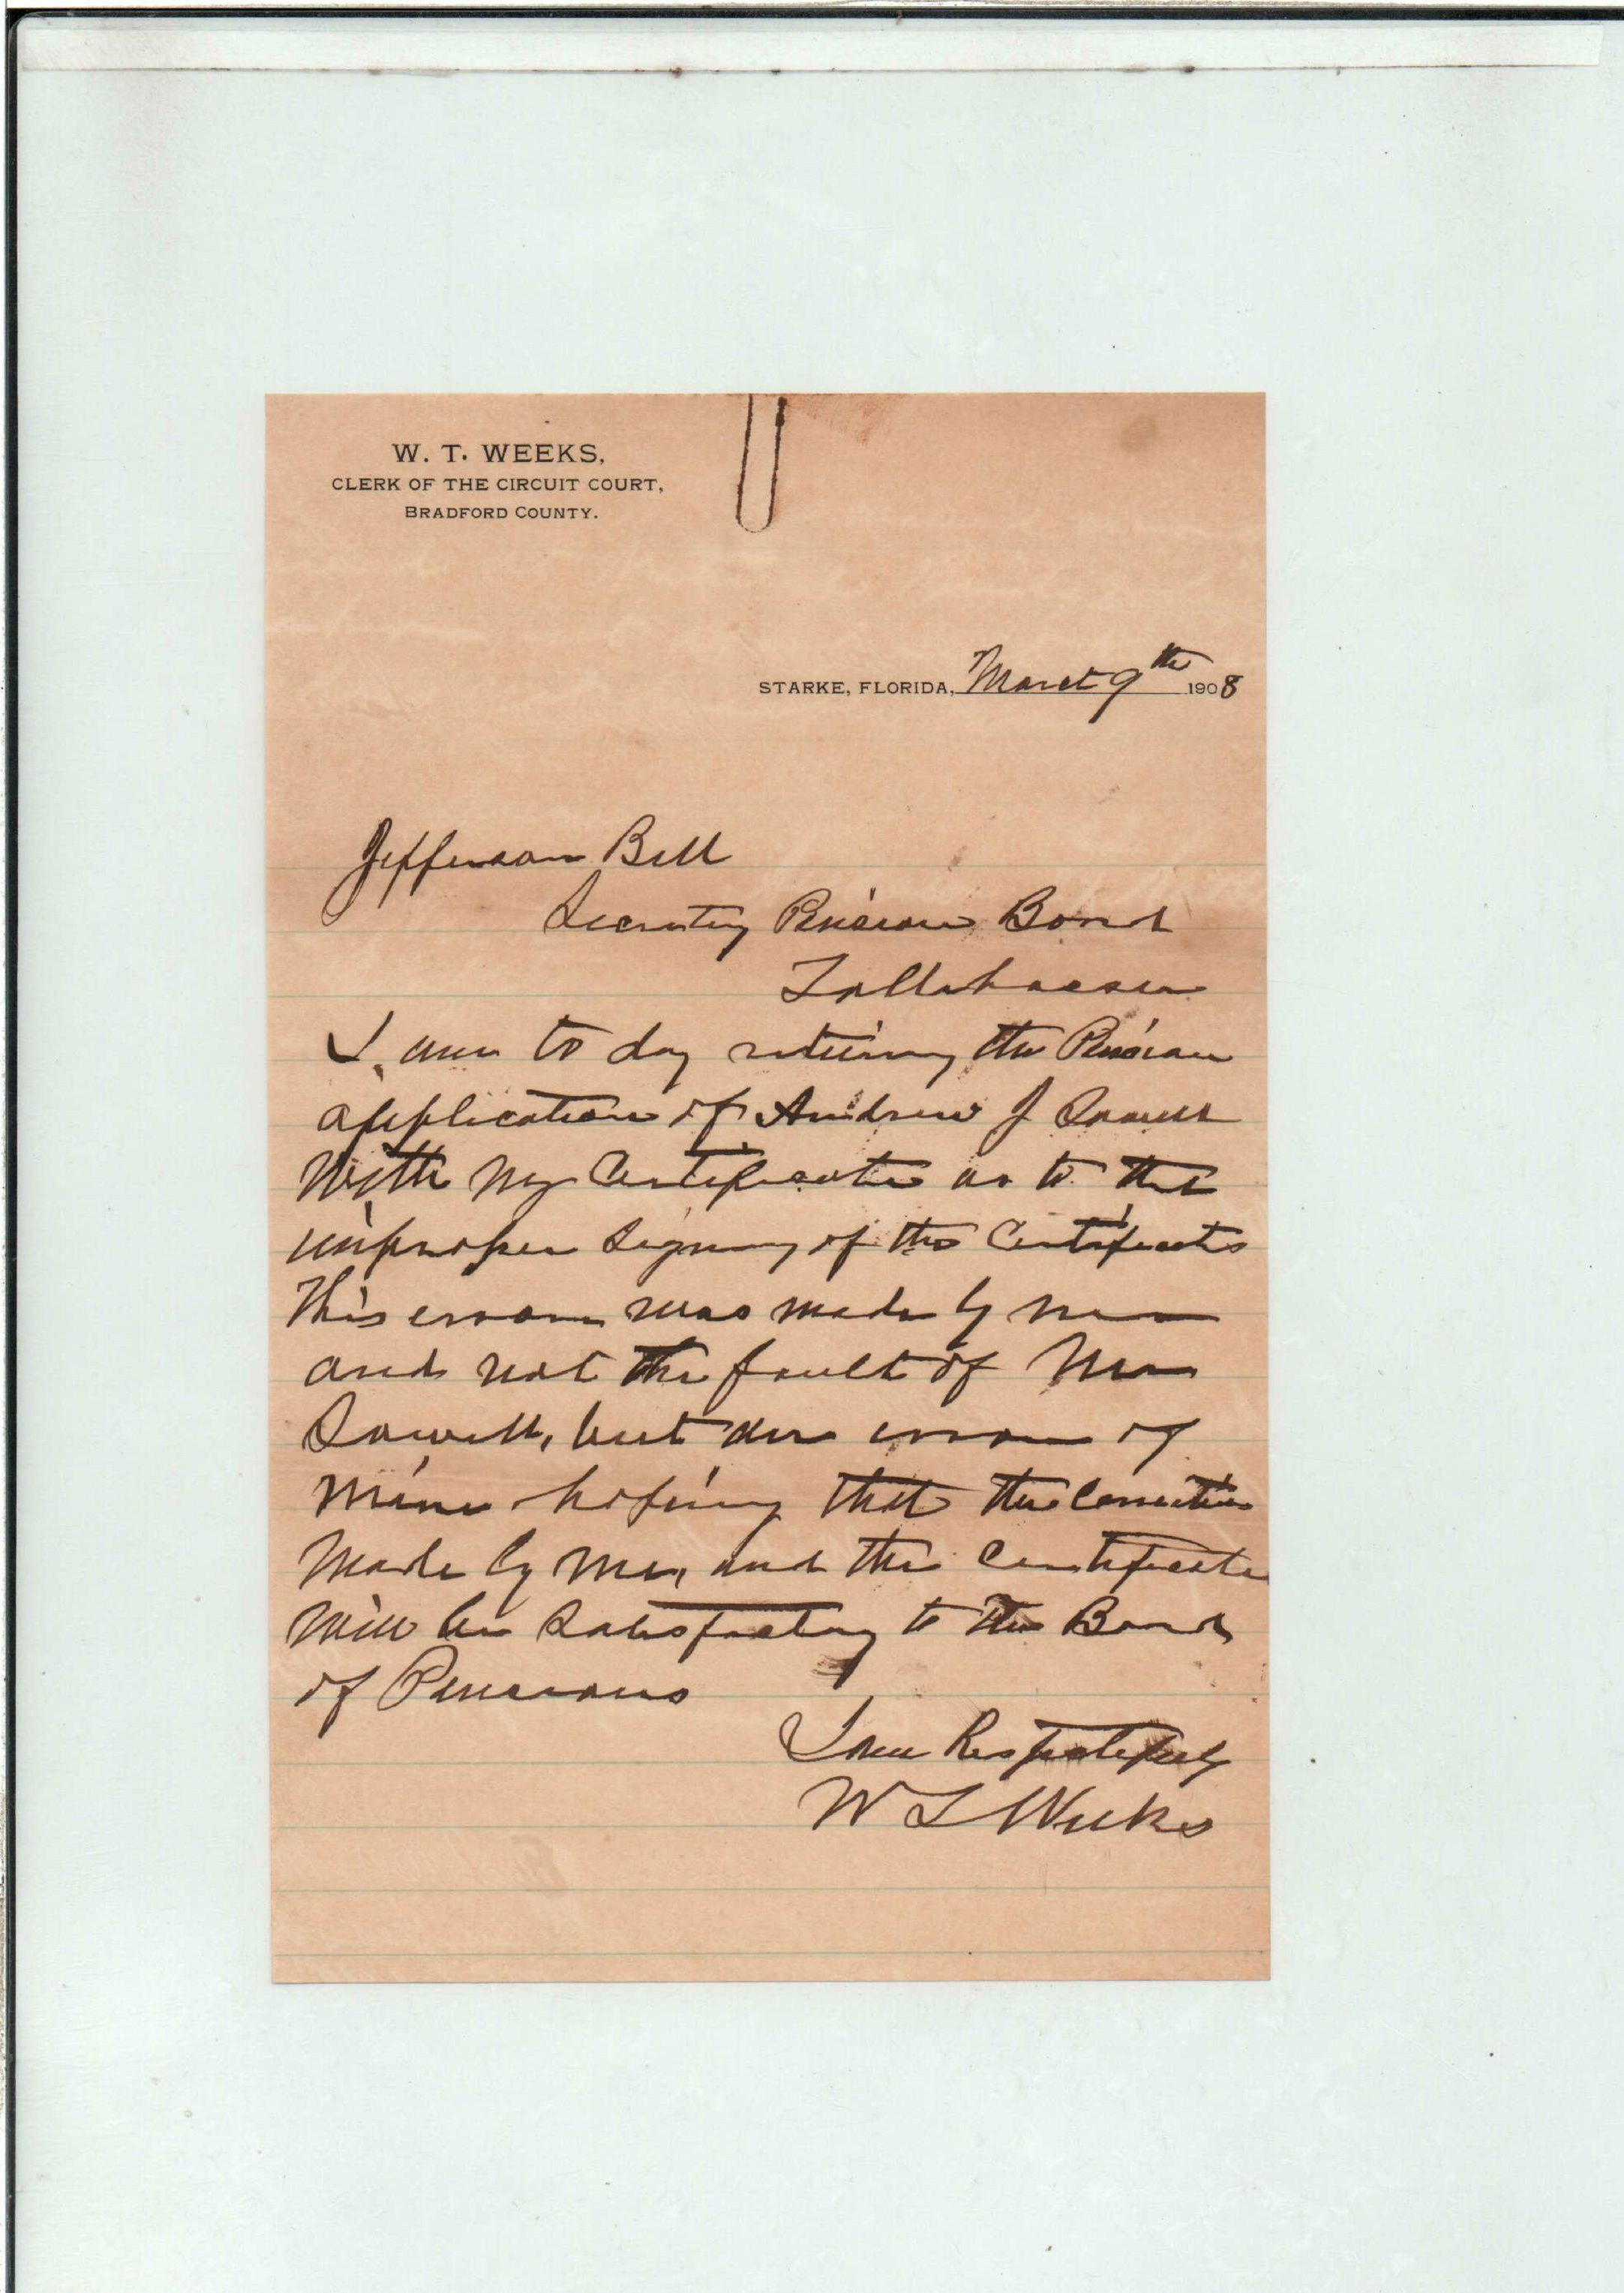 W. T. WEEKS,
CLERK OF THE CIRCUIT COURT,
BRADFORD COUNTY.
STARKE, FLORIDA, March 9th 1908
Jefferson Bell
Secretary Pension Board
Tallahassee
I am to day returning the Pension
application of Andrew J Sowell
With my Certificate as to the
improper signing of the Certificate
This error was made by me
and not the fault of Mr
Sowell, but an error of
mine hoping that the Correction
Made by me, and the Certificate
Will be Satisfactory to the Board
of Pensions
I am Respectfully
W T Weeks